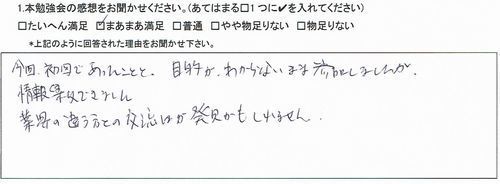 1.本勉強会の感想をお聞かせください。(あてはまる□1つに✔を入れてください)
□たいへん満足 ☑まあまあ満足 □普通 □やや物足りない □物足りない
*上記のように回答された理由をお聞かせ下さい。
今回、初回であったことと、目的が、わからないまま参加しましたが、
情報できました
業界の違う方との交流が発見かもしれません。